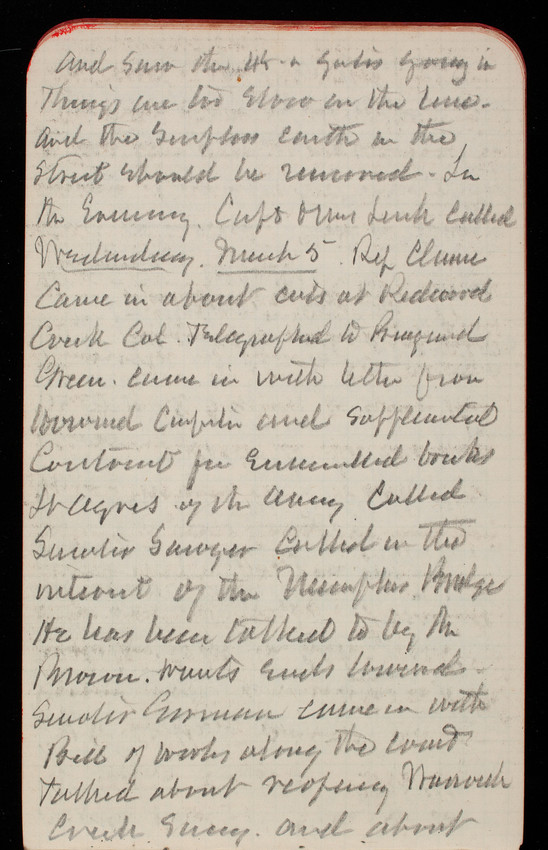 and saw the work going in
Things are too slow on the line.
and the surplus earth in the
Street should be removed. In
the Evening. Capt & Mrs Lusk called
Wednesday. March 5. Rep Clunie
Came in about cuts at Redwood
Creek Cal. Telegraphed to
Green. came in with letter from
and supplemental
Contract for Enamelled bricks
of the Army Called
Senator Sawyer Called in the
interest of the Memphis Bridge
He has been talked to by Mr
. wants ends lowered.
Senator Gorman came in with
Bill of works along the coast
talked about reopening Warwick
Creek Survey. and about